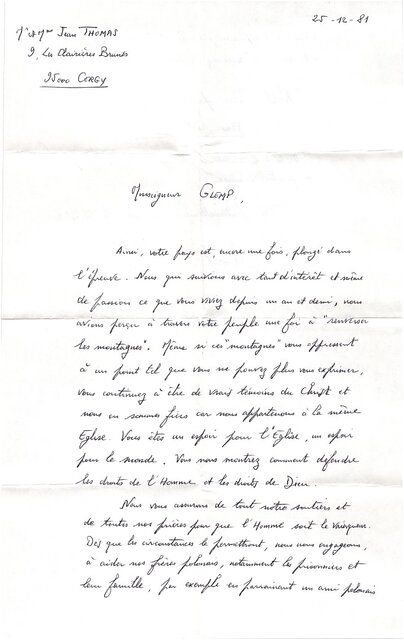 25-12-81
Mr et Mme Jean THOMAS
9, Les Clairières Brunes
95000 CERGY
Monseigneur GLEMP,
Ainsi, votre pays est, encore une fois, plongé dans
l'épreuve. Nous qui suivions avec tant d'intérêt et même
de passion ce que vous vivez depuis un an et demi, nous
avions perçu à travers votre peuple une foi à "renverser
les montagnes". Même si ces "montagnes" vous oppressent
à un point tel que vous ne pouvez plus vous exprimer,
vous continuez à être de vrais témoins du Christ et
nous en sommes fiers car nous appartenons à la même
Eglise. Vous êtes un espoir pour l'Eglise, un espoir
pour le monde. Vous nous montrez comment défendre
les droits de l'Homme et les droits de Dieu.
Nous vous assurons de tout notre soutien et
de toutes nos prières pour que l'Homme soit le vainqueur.
Dès que les circonstances le permettront, nous nous engageons,
à aider nos frères polonais, notamment les prisonniers et
leur famille, par exemple en parrainant un ami polonais